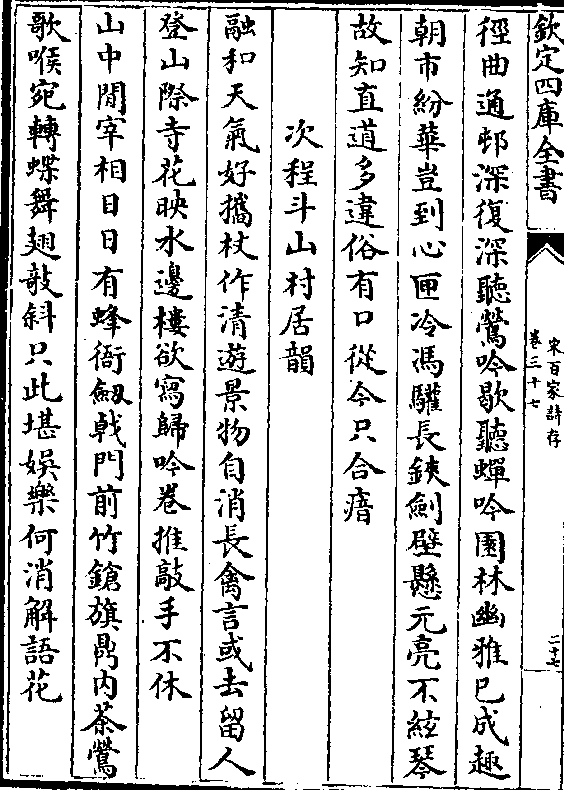 欽定四庫全書
宋百家詩存
卷三十七
二十七
徑曲通邨深復深聽鶯吟歇聽蟬吟園林幽雅已成趣
朝市紛華豈到心匣冷馮驩長鋏劍壁懸元亮不絃琴
故知直道多違俗有口從今只合瘖
次程斗山村居韻
融和天氣好攜杖作清遊景物自消長禽言或去留人
登山際寺花映水邊樓欲寫歸吟卷推敲手不休
山中閒宰相日日有蜂衙劔戟門前竹鎗旗鼎内茶鶯
歌喉宛轉蝶舞翅敧斜只此堪娯樂何消解語花